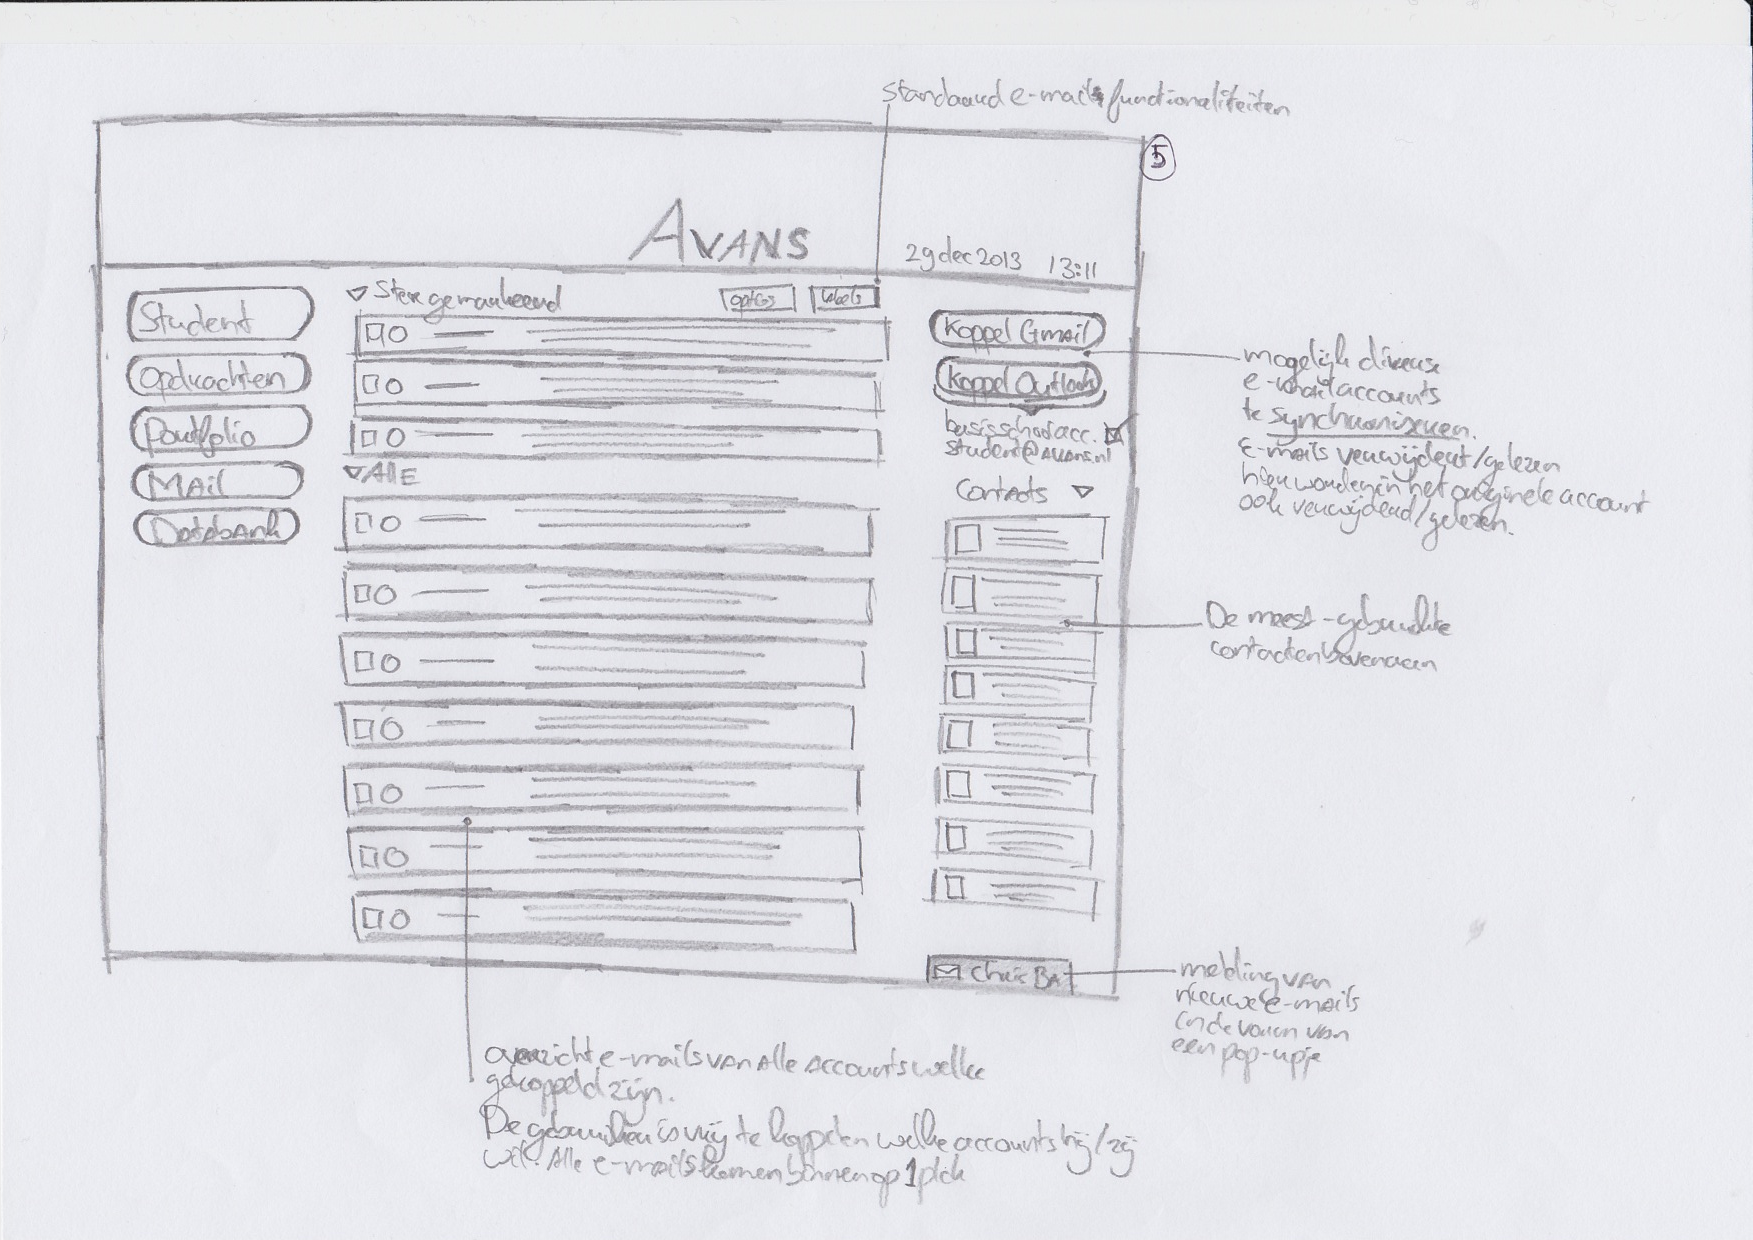 standaard e-mail functionaliteiten
5
AVANS
29 dec 2013 13:11
Student
Opdrachten
Portfolio
MAil
DatabAnk
Ster gemarkeerd
opties
labels
AllE
Koppel Gmail
Koppel Outlook
basisschoolacc.
student@AVANS.nl
Contacts
mogelijk diverse
e-mail accounts
te synchroniseren.
E-mails verwijderd/gelezen
hier worden in het originele account
ook verwijderd/gelezen.
De meest-gebruikte
contacten bovenaan
Chris BA
melding van
nieuwe e-mails
in de vorm van
een pop-upje
overzicht e-mails van Alle Accounts welke
gekoppeld zijn.
De gebruiker is vrij te koppelen welke accounts hij/zij
wil. Alle e-mails komen binnen op 1 plek